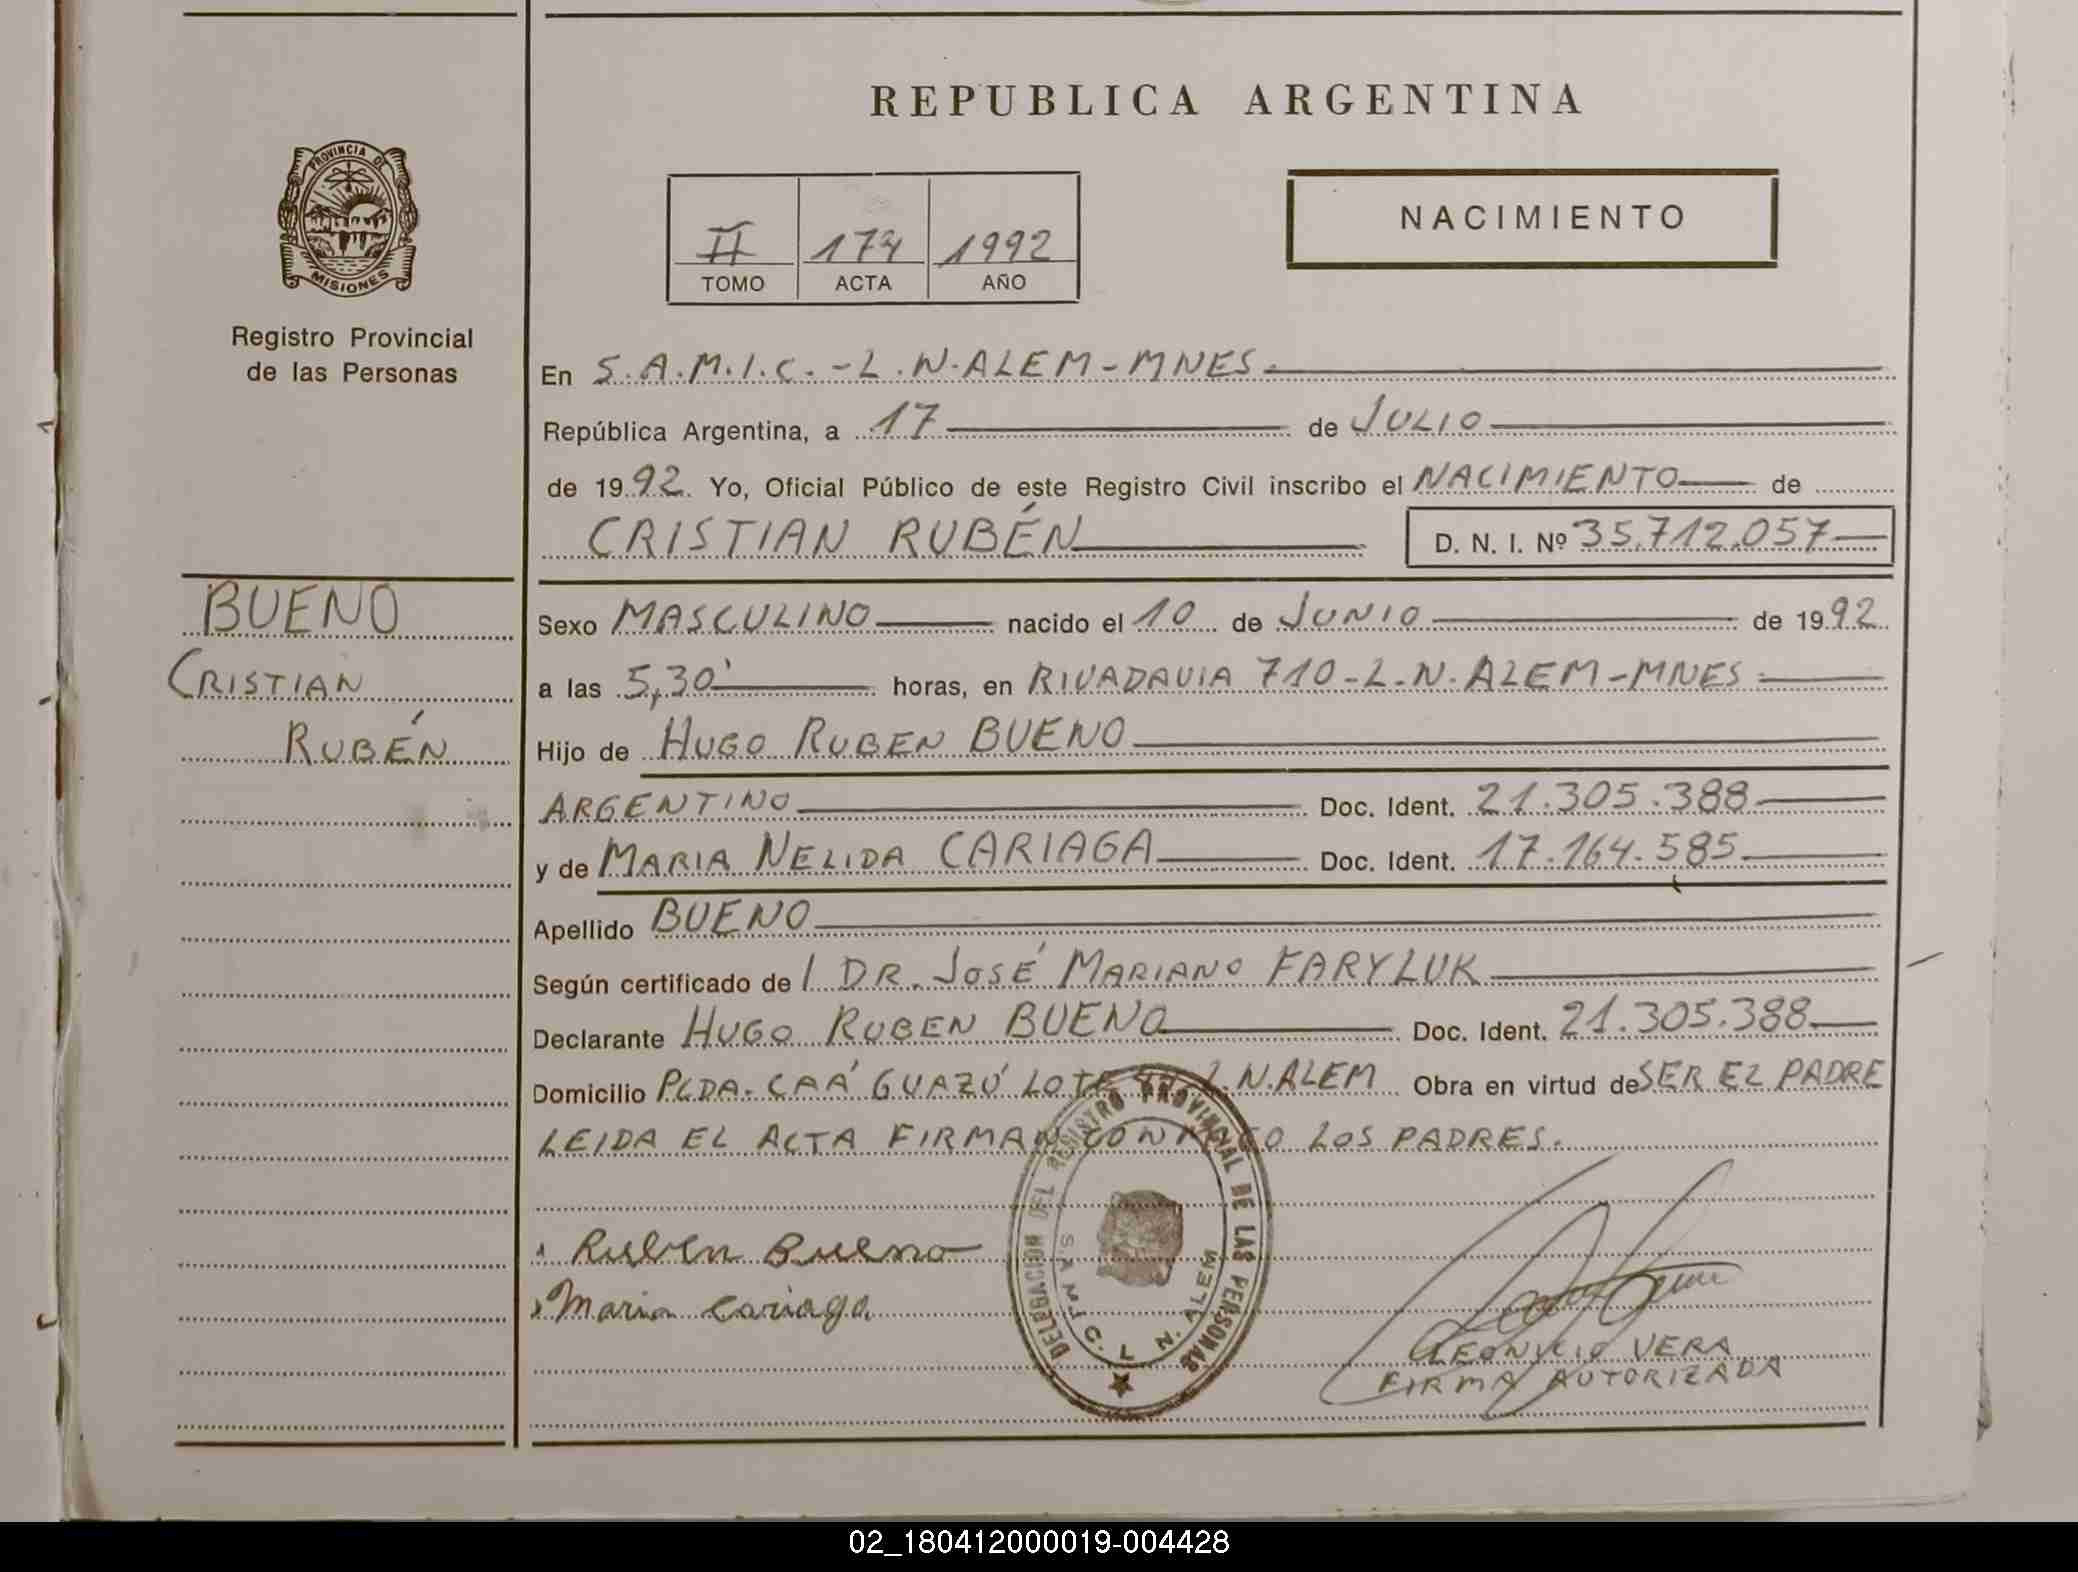 REPUBLICA ARGENTINA
PROVINCIA DE
MISIONES
Registro Provincial
de las Personas
II 174 1992
TOMO ACTA AÑO
NACIMIENTO
En S.A.M.I.C. - L.N. ALEM - MNES.
República Argentina, a 17 de JULIO
de 1992. Yo, Oficial Público de este Registro Civil inscribo el NACIMIENTO de
CRISTIAN RUBÉN D. N. I. Nº 35.712.057
BUENO
CRISTIAN
RUBÉN
Sexo MASCULINO nacido el 10 de JUNIO de 1992
a las 5,30' horas, en RIVADAVIA 710 - L.N. ALEM - MNES
Hijo de HUGO RUBEN BUENO
ARGENTINO Doc. Ident. 21.305.388
y de MARIA NELIDA CARIAGA Doc. Ident. 17.164.585
Apellido BUENO
Según certificado de l DR. JOSÉ MARIANO FARYLUK
Declarante HUGO RUBEN BUENO Doc. Ident. 21.305.388
Domicilio PCDA. CAÁ GUAZÚ LOTE L.N. ALEM Obra en virtud de SER EL PADRE
LEIDA EL ACTA FIRMAN CONMIGO LOS PADRES.
Ruben Bueno
Maria Cariaga
DELEGACION DEL REGISTRO PROVINCIAL DE LAS PERSONAS
S.A.M.I.C. L. N. ALEM
VERA
FIRMA AUTORIZADA
02_180412000019-004428